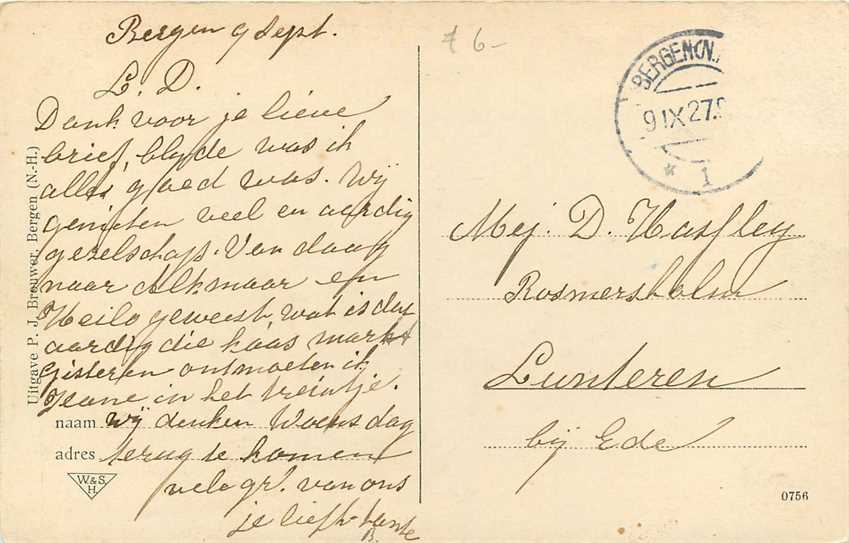 Bergen 9 Sept.
L. D.
Dank voor je lieve
brief, blyde was ik
alles goed was. Wij
genieten veel en aardig
gezelschap. Van daag
naar Alkmaar en
Heilo geweest wat is dat
aardig die kaas markt
Gisteren ontmoeten ik
Jeane in het treintje.
naam wij denken Woensdag
adres terug te komen
vele gr. van ons
je liefh. tante
B.
Uitgave P. J. Brouwer, Bergen (N.-H.)
W.&S.
H.
# 6-
BERGEN(N.
9 IX 27.9
* 1
Mej. D.
Rosmersholm
Lunteren
bij Ede
0756